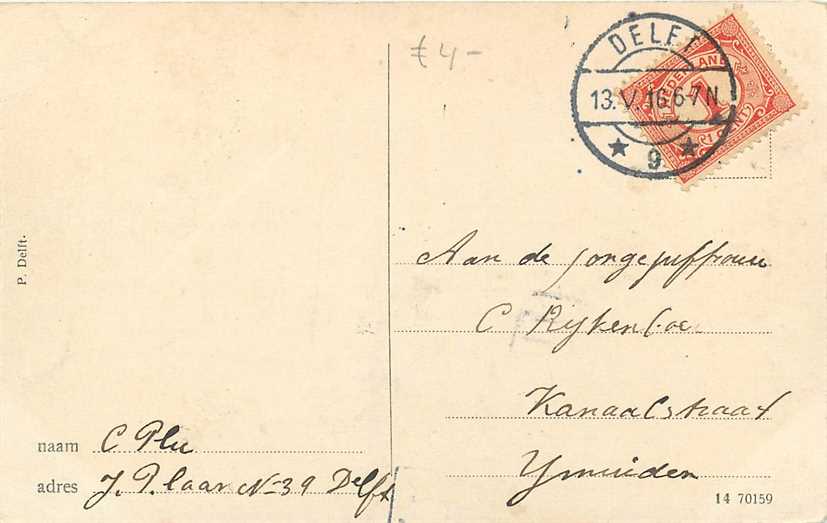 € 4-
DELFT
13.V.16 6-7N
9
NEDERLAND
1
P. Delft.
Aan de Jongejuffrouw
C Rijkenboe
Kanaalstraat
Ymuiden
naam C Plu
adres J. P. laan No 39 Delft
14 70159